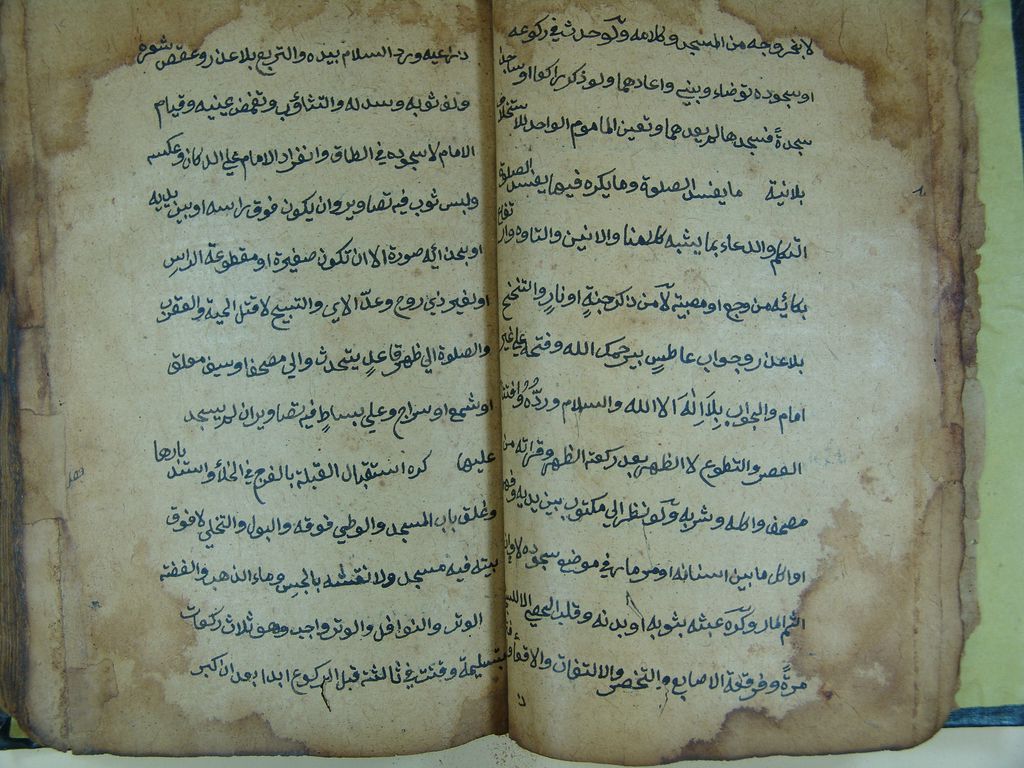 لابخروجه من المسجد وكلامه ولو حدث في ركوعه
او سجوده توضاء وبني واعادهما ولو ذكر راكعا او ساجدا
سجدة فسجدها لم يعدهما وتعين الماموم الواحد للاستخلاف
بلانية ما يفسد الصلوة وما يكره فيها يفسد الصلوة
التكلم والدعاء بما يشبه كلامنا والانين والتاوه وارتفاع
بكائه من وجع او مصيبة لا من ذكر جنة او نار والتنحنح
بلا عذر وجواب عاطس بيرحمك الله وفتحه علي غير
امامه والجواب بلا اله الا الله والسلام ورده وافتتاح
العصر والتطوع لا الظهر بعد ركعة الظهر وقراته من
مصحف واكله وشربه ولو نظر الي مكتوب بين يديه وفهمه
او اكل ما بين اسنانه او مر مار في موضع سجوده لا وان
اثم المار وكره عبثه بثوبه او بدنه وقلب الحصي الا للسجود
مرة وفرقعة الاصابع والتخصر والالتفات والاقعا وافتراش
ذراعيه ورد السلام بيده والتربع بلا عذر وعقص شعره
ولف ثوبه وسدله والتثاؤب وتغمض عينيه وقيام
الامام لا سجوده في الطاق وانفراد الامام علي الدكان وعكسه
ولبس ثوب فيه تصاوير وان يكون فوق راسه او بين يديه
او بحذائه صورة الا ان تكون صغيرة او مقطوعة الراس
او لغير ذي روح وعد الاي والتسبيح لا قتل الحية والعقرب
والصلوة الي ظهر قاعد يتحدث والي مصحف او سيف معلق
او شمع او سراج وعلي بساط فيه تصاوير ان لم يسجد
عليها كره استقبال القبلة بالفرج في الخلا واستدبارها
وغلق باب المسجد والوطي فوقه والبول والتخلي لا فوق
بيته فيه مسجد ولا نقشه بالجص وماء الذهب والفضة
الوتر والنوافل والوتر واجب وهو ثلاث ركعات
بتسليمة وقنت في ثالثته قبل الركوع ابدا بعد ان كبر